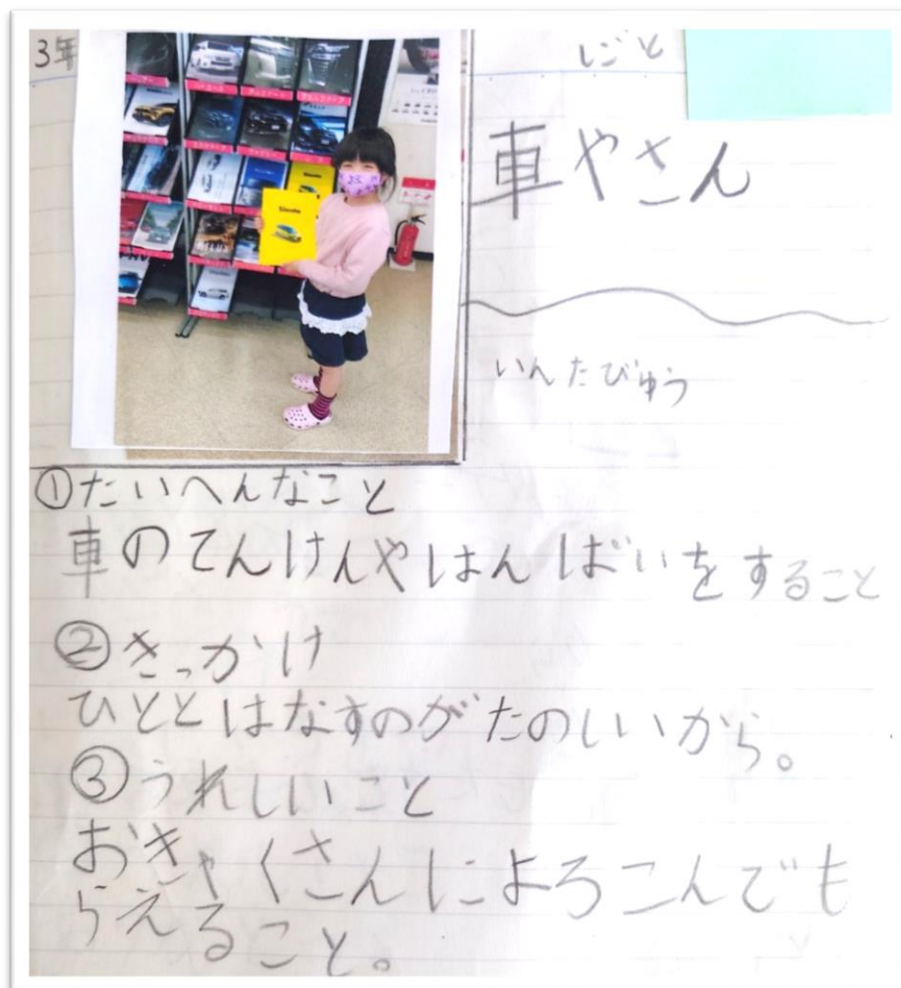 3年
しごと
車やさん
いんたびゅう
①たいへんなこと
車のてんけんやはんばいをすること
②きっかけ
ひととはなすのがたのしいから。
③うれしいこと
おきゃくさんによろこんでも
らえること。